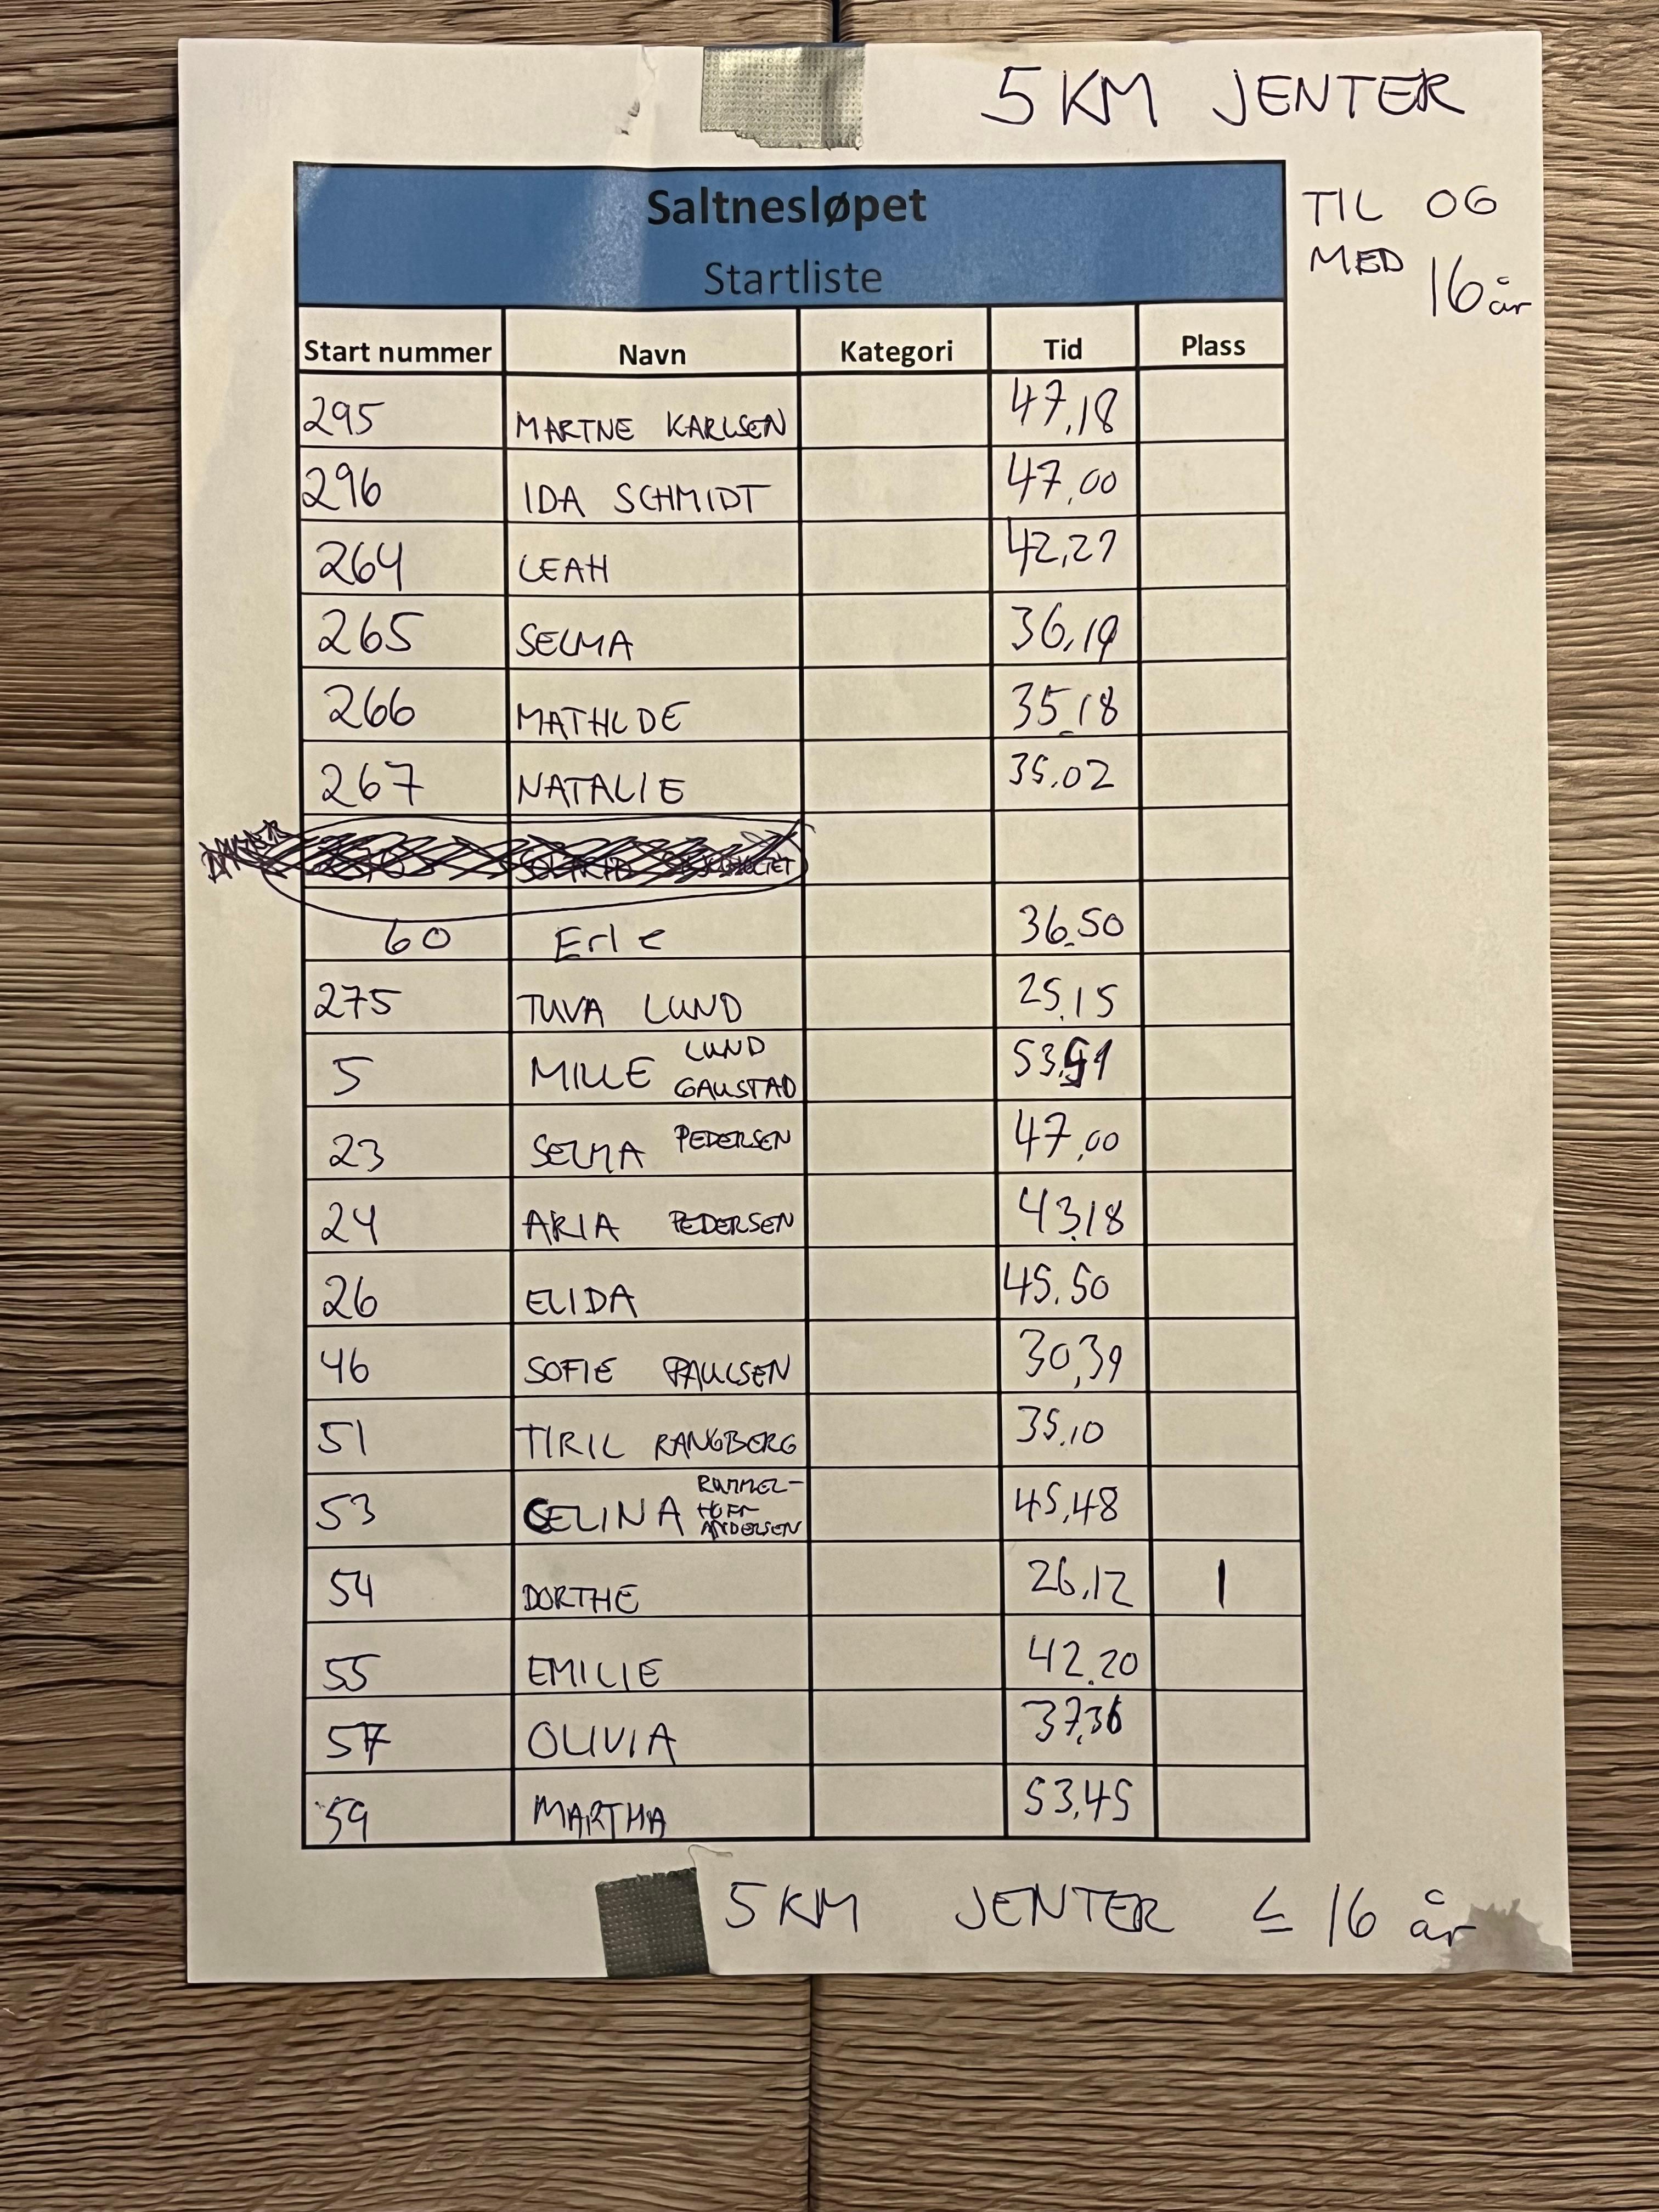 5 KM JENTER
TIL OG
MED 16 år
Saltnesløpet
Startliste
Start nummer Navn Kategori Tid Plass
295 MARTNE KARLSEN 47,18
296 IDA SCHMIDT 47,00
264 LEAH 42,27
265 SELMA 36,19
266 MATHLDE 35,18
267 NATALIE 35.02
60 Erle 36.50
275 TUVA LUND 25,15
5 MILLE LUND GAUSTAD
23 SELMA PEDERSEN 47,00
24 ARIA PEDERSEN 43,18
26 ELIDA 45.50
46 SOFIE PAULSEN 30,39
51 TIRIL RANGBERG 35.10
53 CELINA RUMMEL-HOFF ANDERSEN 45,48
54 DORTHE 26,12 1
55 EMILIE 42.20
57 OLIVIA 37,36
59 MARTHA 53,45
5 KM JENTER ≤ 16 år